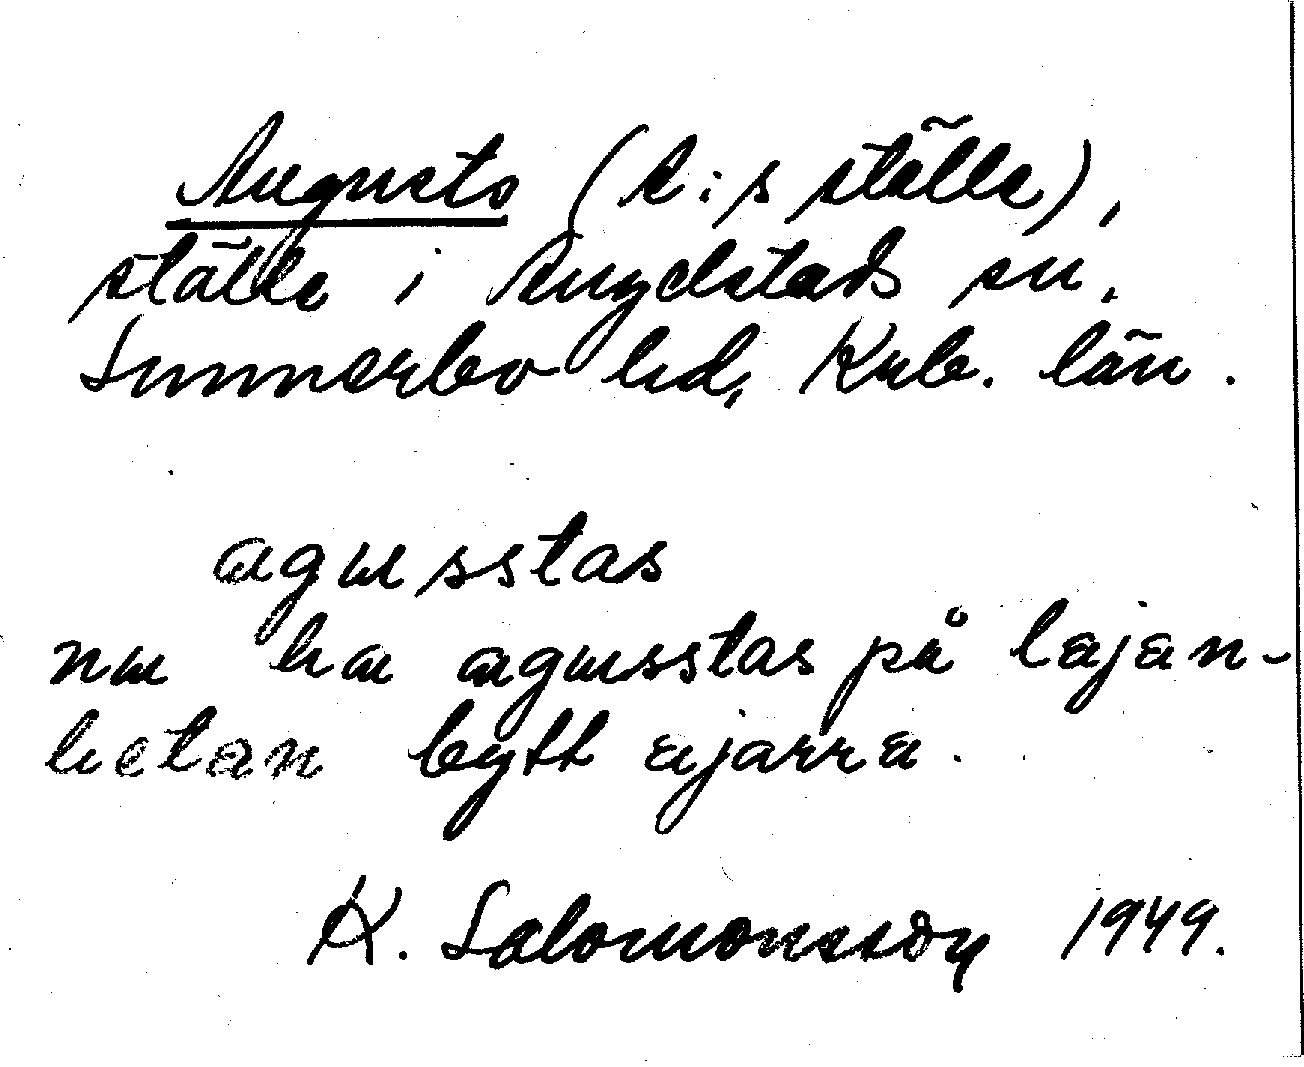 Augusts (A:s ställe),
ställe i Augelstads sn,
Sunnerbo hd, Krb. län.
agusstas
nu ha agusstas på lajan-
hetan bytt ajarra.
K. Salomonsson 1949.